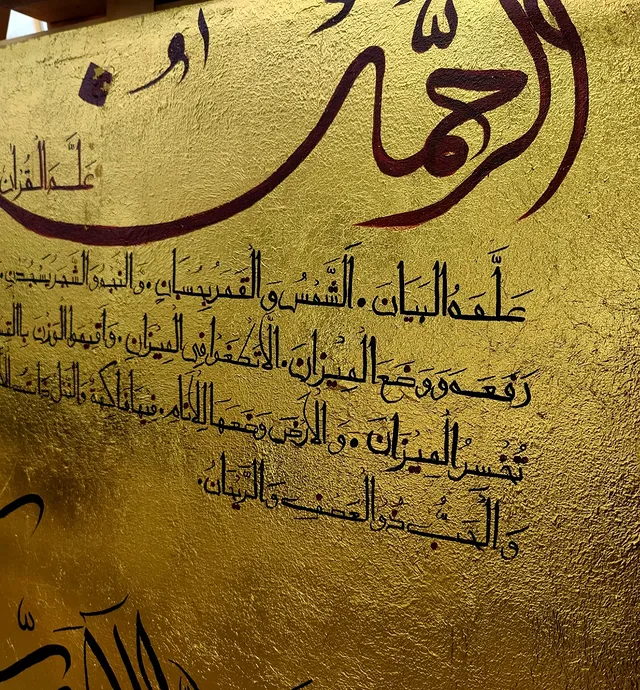 الرحمن
عَلَّمَ الْقُرْآن
عَلَّمَهُ الْبَيَانَ. الشَّمْسُ وَالْقَمَرُ بِحُسْبَانٍ. وَالنَّجْمُ وَالشَّجَرُ يَسْجُدَانِ.
رَفَعَهَا وَوَضَعَ الْمِيزَانَ. أَلَّا تَطْغَوْا فِي الْمِيزَانِ. وَأَقِيمُوا الْوَزْنَ
تُخْسِرُوا الْمِيزَانَ. وَالْأَرْضَ وَضَعَهَا لِلْأَنَامِ. فِيهَا فَاكِهَةٌ وَالنَّخْلُ ذَاتُ
وَالْحَبُّ ذُو الْعَصْفِ وَالرَّيْحَانُ.